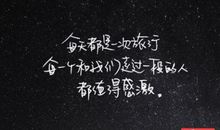 每天都是一次旅行
每一个和我们走过一段的人
都值得感激。